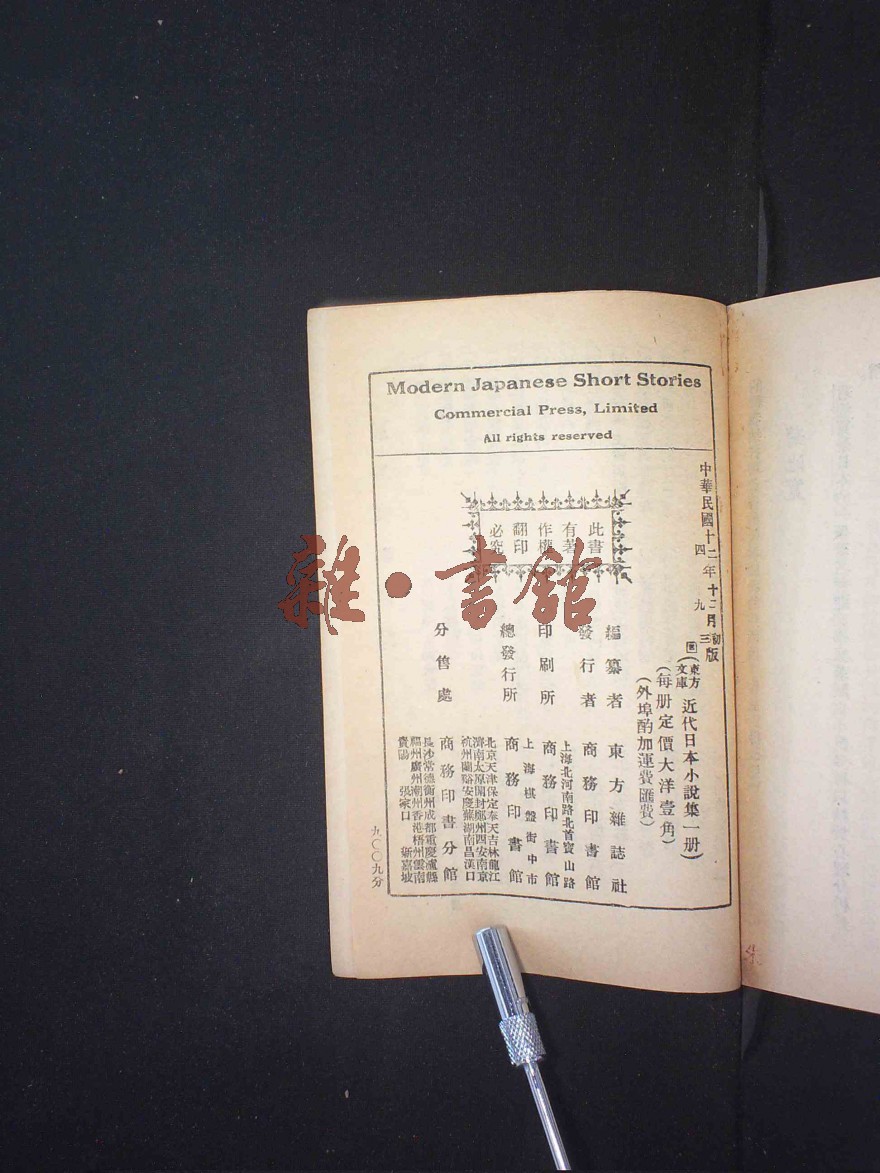 Modern Japanese Short Stories
Commercial Press, Limited
All rights reserved
中華民國十二年十二月初版
四 九 三
東方文庫
近代日本小說集一册)
(每册定價大洋壹角)
(外埠酌加運費匯費)
此書
有著
作權
翻印
必究
編纂者 東方雜誌社
發行者 商務印書館
上海北河南路北首寶山路
印刷所 商務印書館
上海棋盤街中市
總發行所 商務印書館
北京天津保定奉天吉林龍江
濟南太原開封鄭州西安南京
杭州蘭谿安慶蕪湖南昌漢口
分售處 商務印書分館
長沙常德衡州成都重慶瀘縣
福州廣州潮州香港梧州雲南
貴陽 張家口 新嘉坡
九〇〇九分
雜·書館